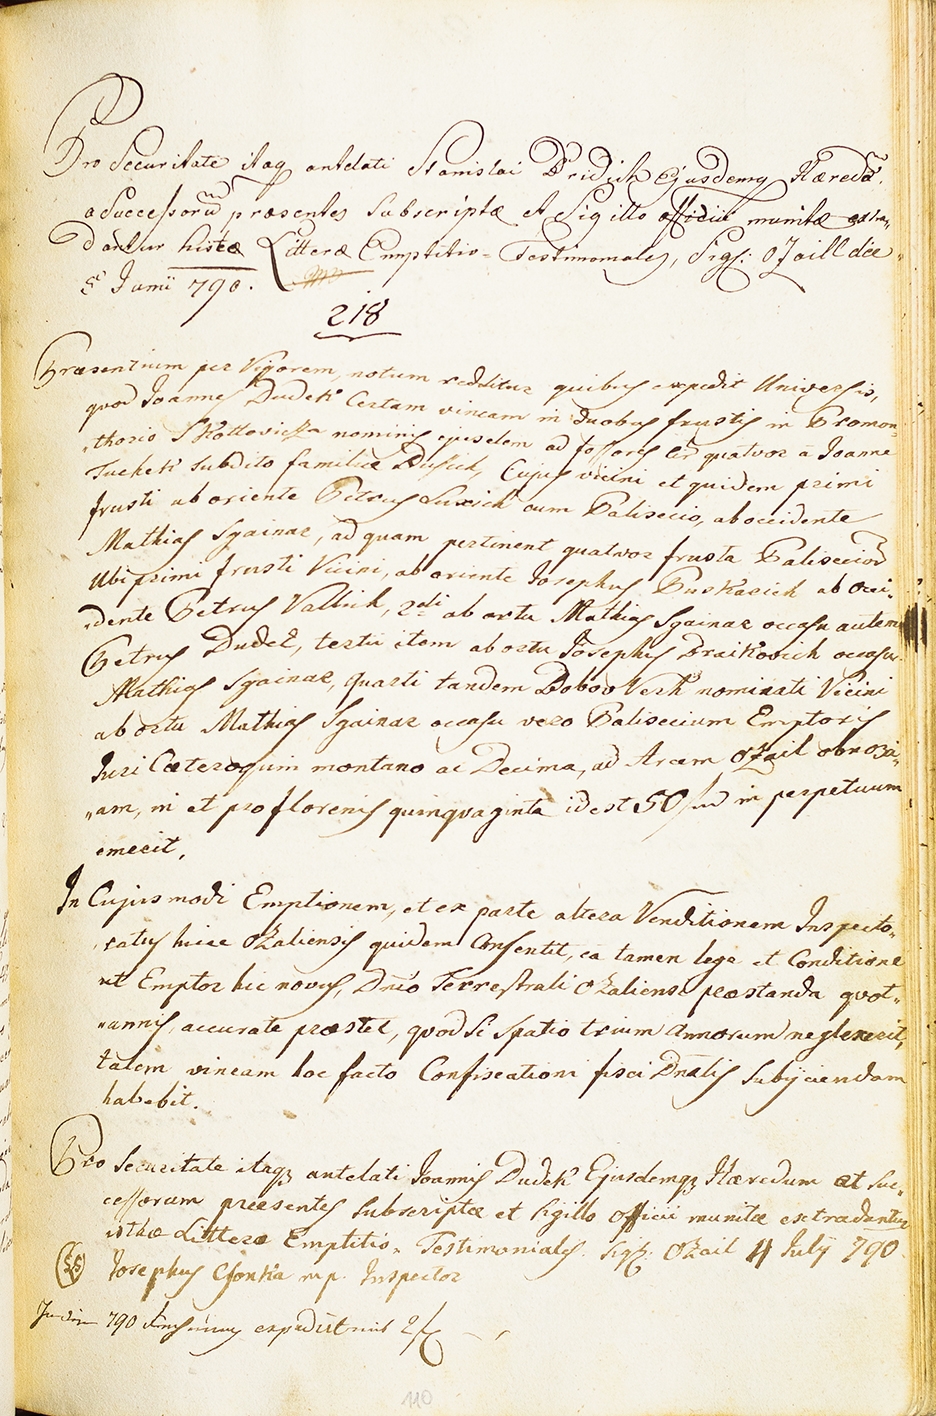 Pro Securitate itaq antelati Stanislai Bridich Ejusdemq Hæredū,
ac Successorū præsentes subscriptæ et Sigillo officii munitæ extra„
dantur hiscæ Litteræ Emptitio-Testimoniales, Sigs: Ozaill die
Junii 790.
218
Præsentium per Vigorem, notum redditur quibus expedit Universis,
quod Joannes Dudek Certam vineam in duobus frustis in Promon„
„thorio nominis ejusdem ad fossores cir quatvor a Joanne
subdito familiæ Dusich, Cujus vicini et quidem primi
frusti ab oriente Petrus cum Palisecio, ab occidente
Mathias Sgainar, ad quam pertinent quatvor frusta Palisecior
Ubi primi frusti Vicini, ab oriente Josephus Puskarich ab occi„
„dente Petrus, 2di ab ortu Mathias Sgainar occasu autem
Petrus Dudek, tertii item ab ortu Josephus Braikovich occasu
Mathias Sgainar, quarti tandem nominati Vicini
ab ortu Mathias Sgainar occasu vero Palisecium Emptoris
Juri Cæteroquin montano ac Decimæ, ad Arcem Ozail obnoxi„
„am, in et pro florenis quinqvaginta id est 50 in perpetuum
emerit.
In Cujusmodi Emptionem, et ex parte altera Venditionem Inspecto„
ratus hicce Ozaliensis quidem Consentit, ea tamen lege et Conditione
ut Emptor hic novus, Dnio Terrestrali Ozaliensi præstanda qvot„
„annis, accurate præstet, qvod si spatio trium Annorum neglexerit,
talem vineam hoc facto Confiscationi fisci Dnalis subijciendam
habebit.
Pro Securitate itaqz antelati Joannis Dudek Ejusdemqz Hæredum et Suc„
cessorum præesentes subscriptæ et Sigillo officii munitæ extradantur
isthæ Litteræ Emptitio„ Testimoniales. Sigs: Ozail 4 July 790.
Josephus Csonka mp. Inspector
790 expedit 2
110